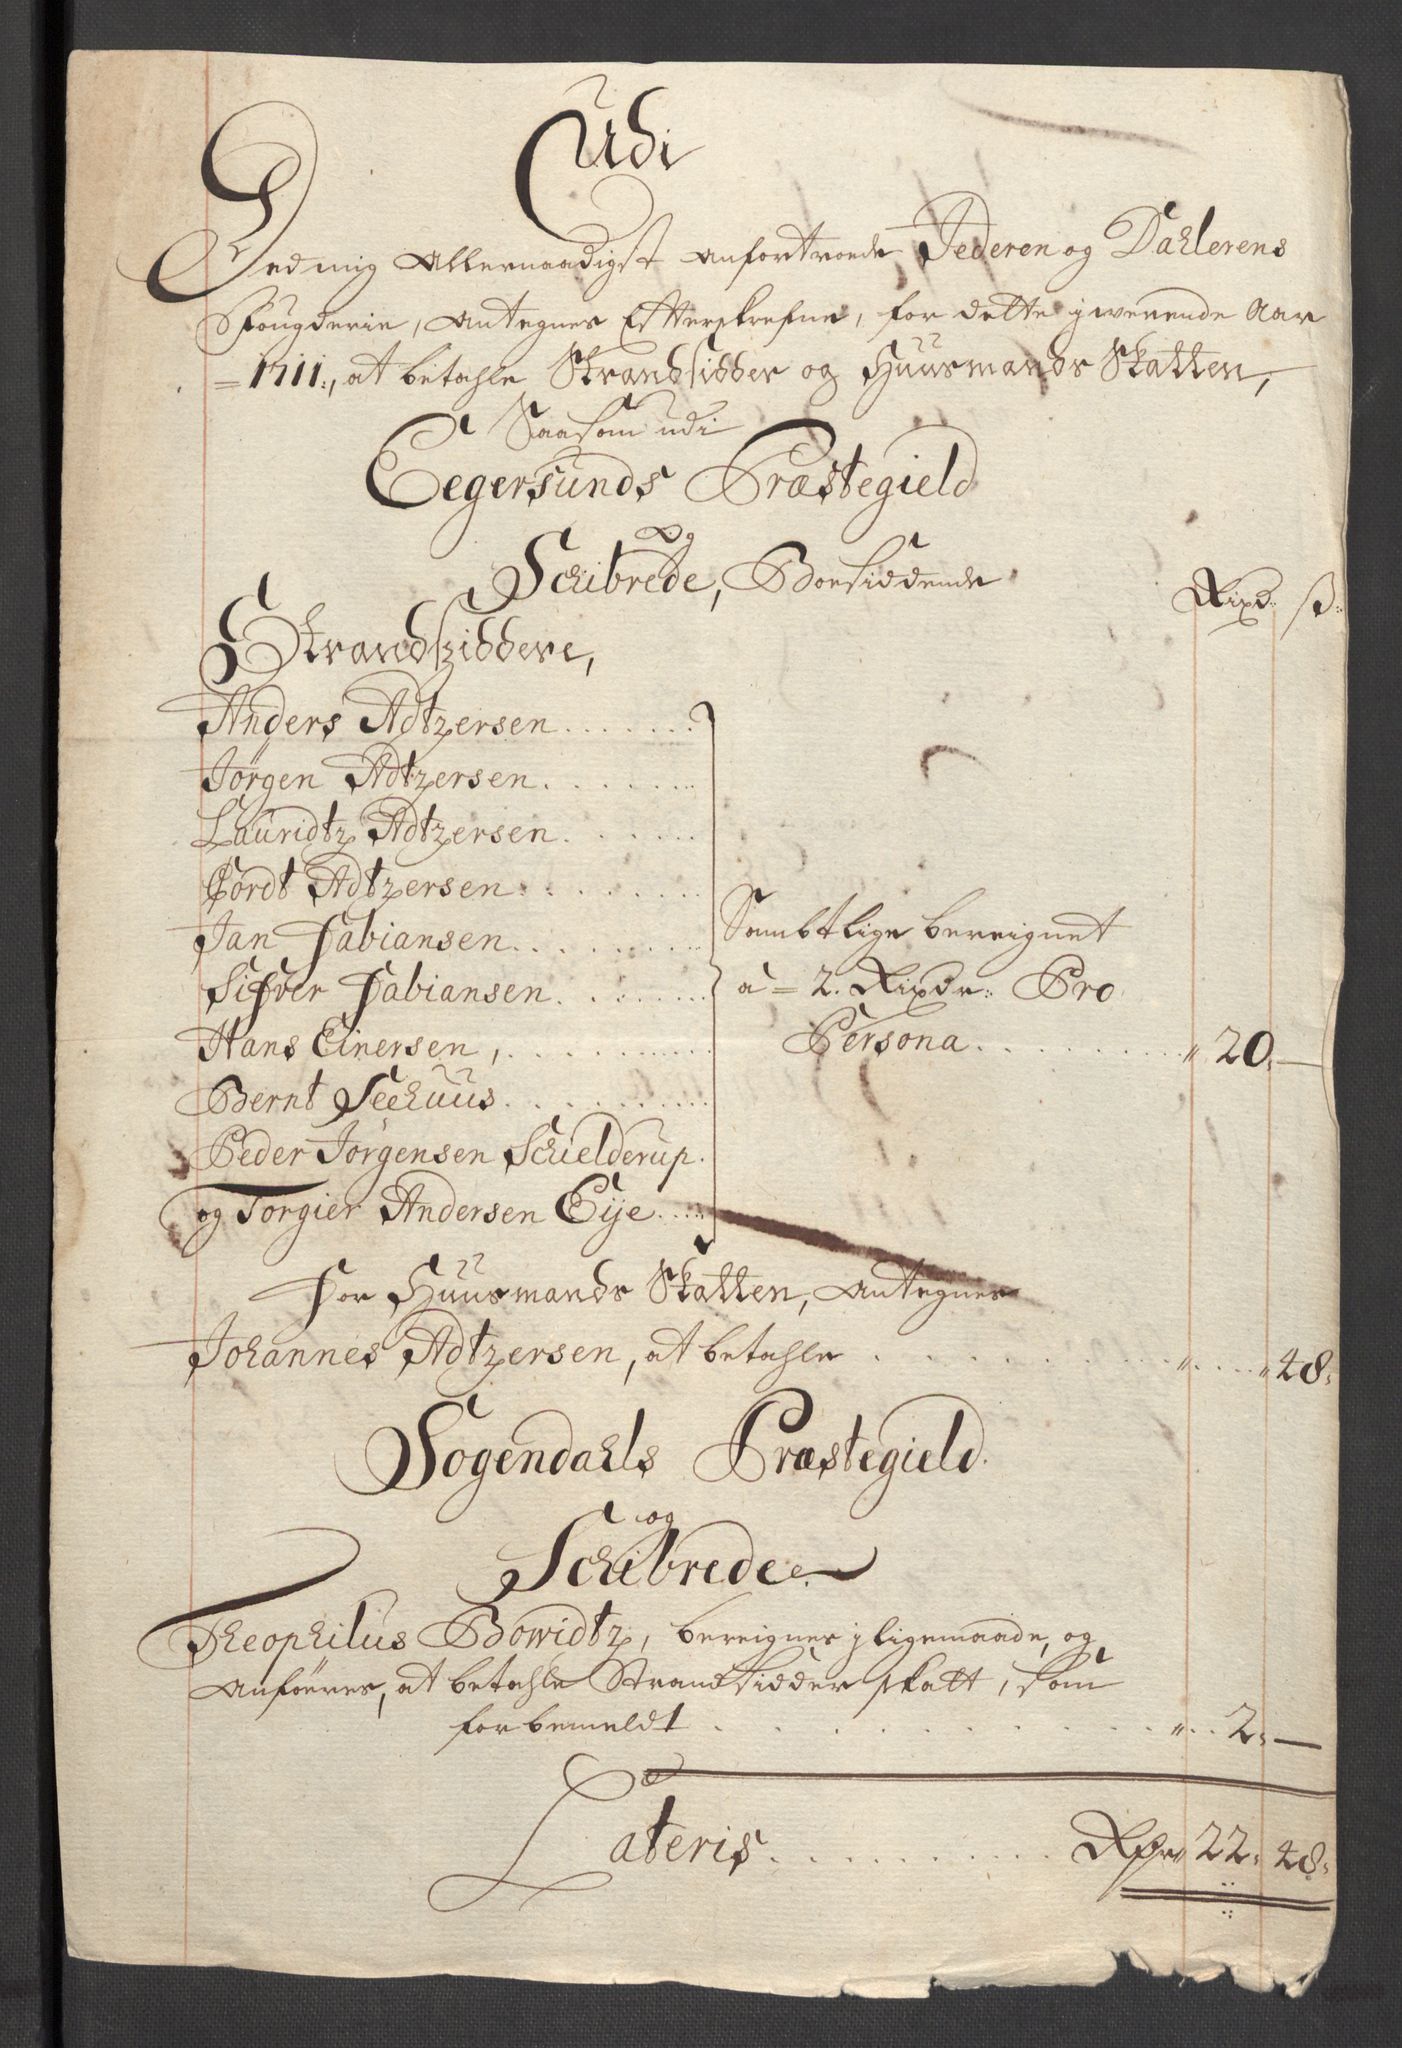 Udi
Det mig Allernaadigst anfortroede Jederen og Dahlerens
Fougderie, Antegnes Efterskrefne, for dette jwerende Aar
= 1711:, at betahle Strandsidder og Huusmands Skatten,
Saasom udi
Eegersunds Præstegield
og
Schibrede, Boesiddende
Rixd: ß:
Strandsiddere,
Anders Adtzersen
Jørgen Adtzersen
Lauridtz Adtzersen
Cordt Adtzersen
Jan Fabiansen
Sifver Fabiansen
Hans Einersen,
Bernt Seehuus
Peder Jørgensen Schielderup.
og Torgier Andersen Eije
Sambtlige bereignet
a = 2. Rixdr: Pro
Persona 20. —
For Huusmands Skatten, Antegnes
Johannes Adtzersen, at betahle 48.
Sogendahls Præstegield.
og
Schibrede.
Theophilus Bowidtz, bereignes j ligemaade, og
Anføeres, at betahle Strandsidder skatt, som
forbemeldt 2. —
Lateris Rdr 22. 48.